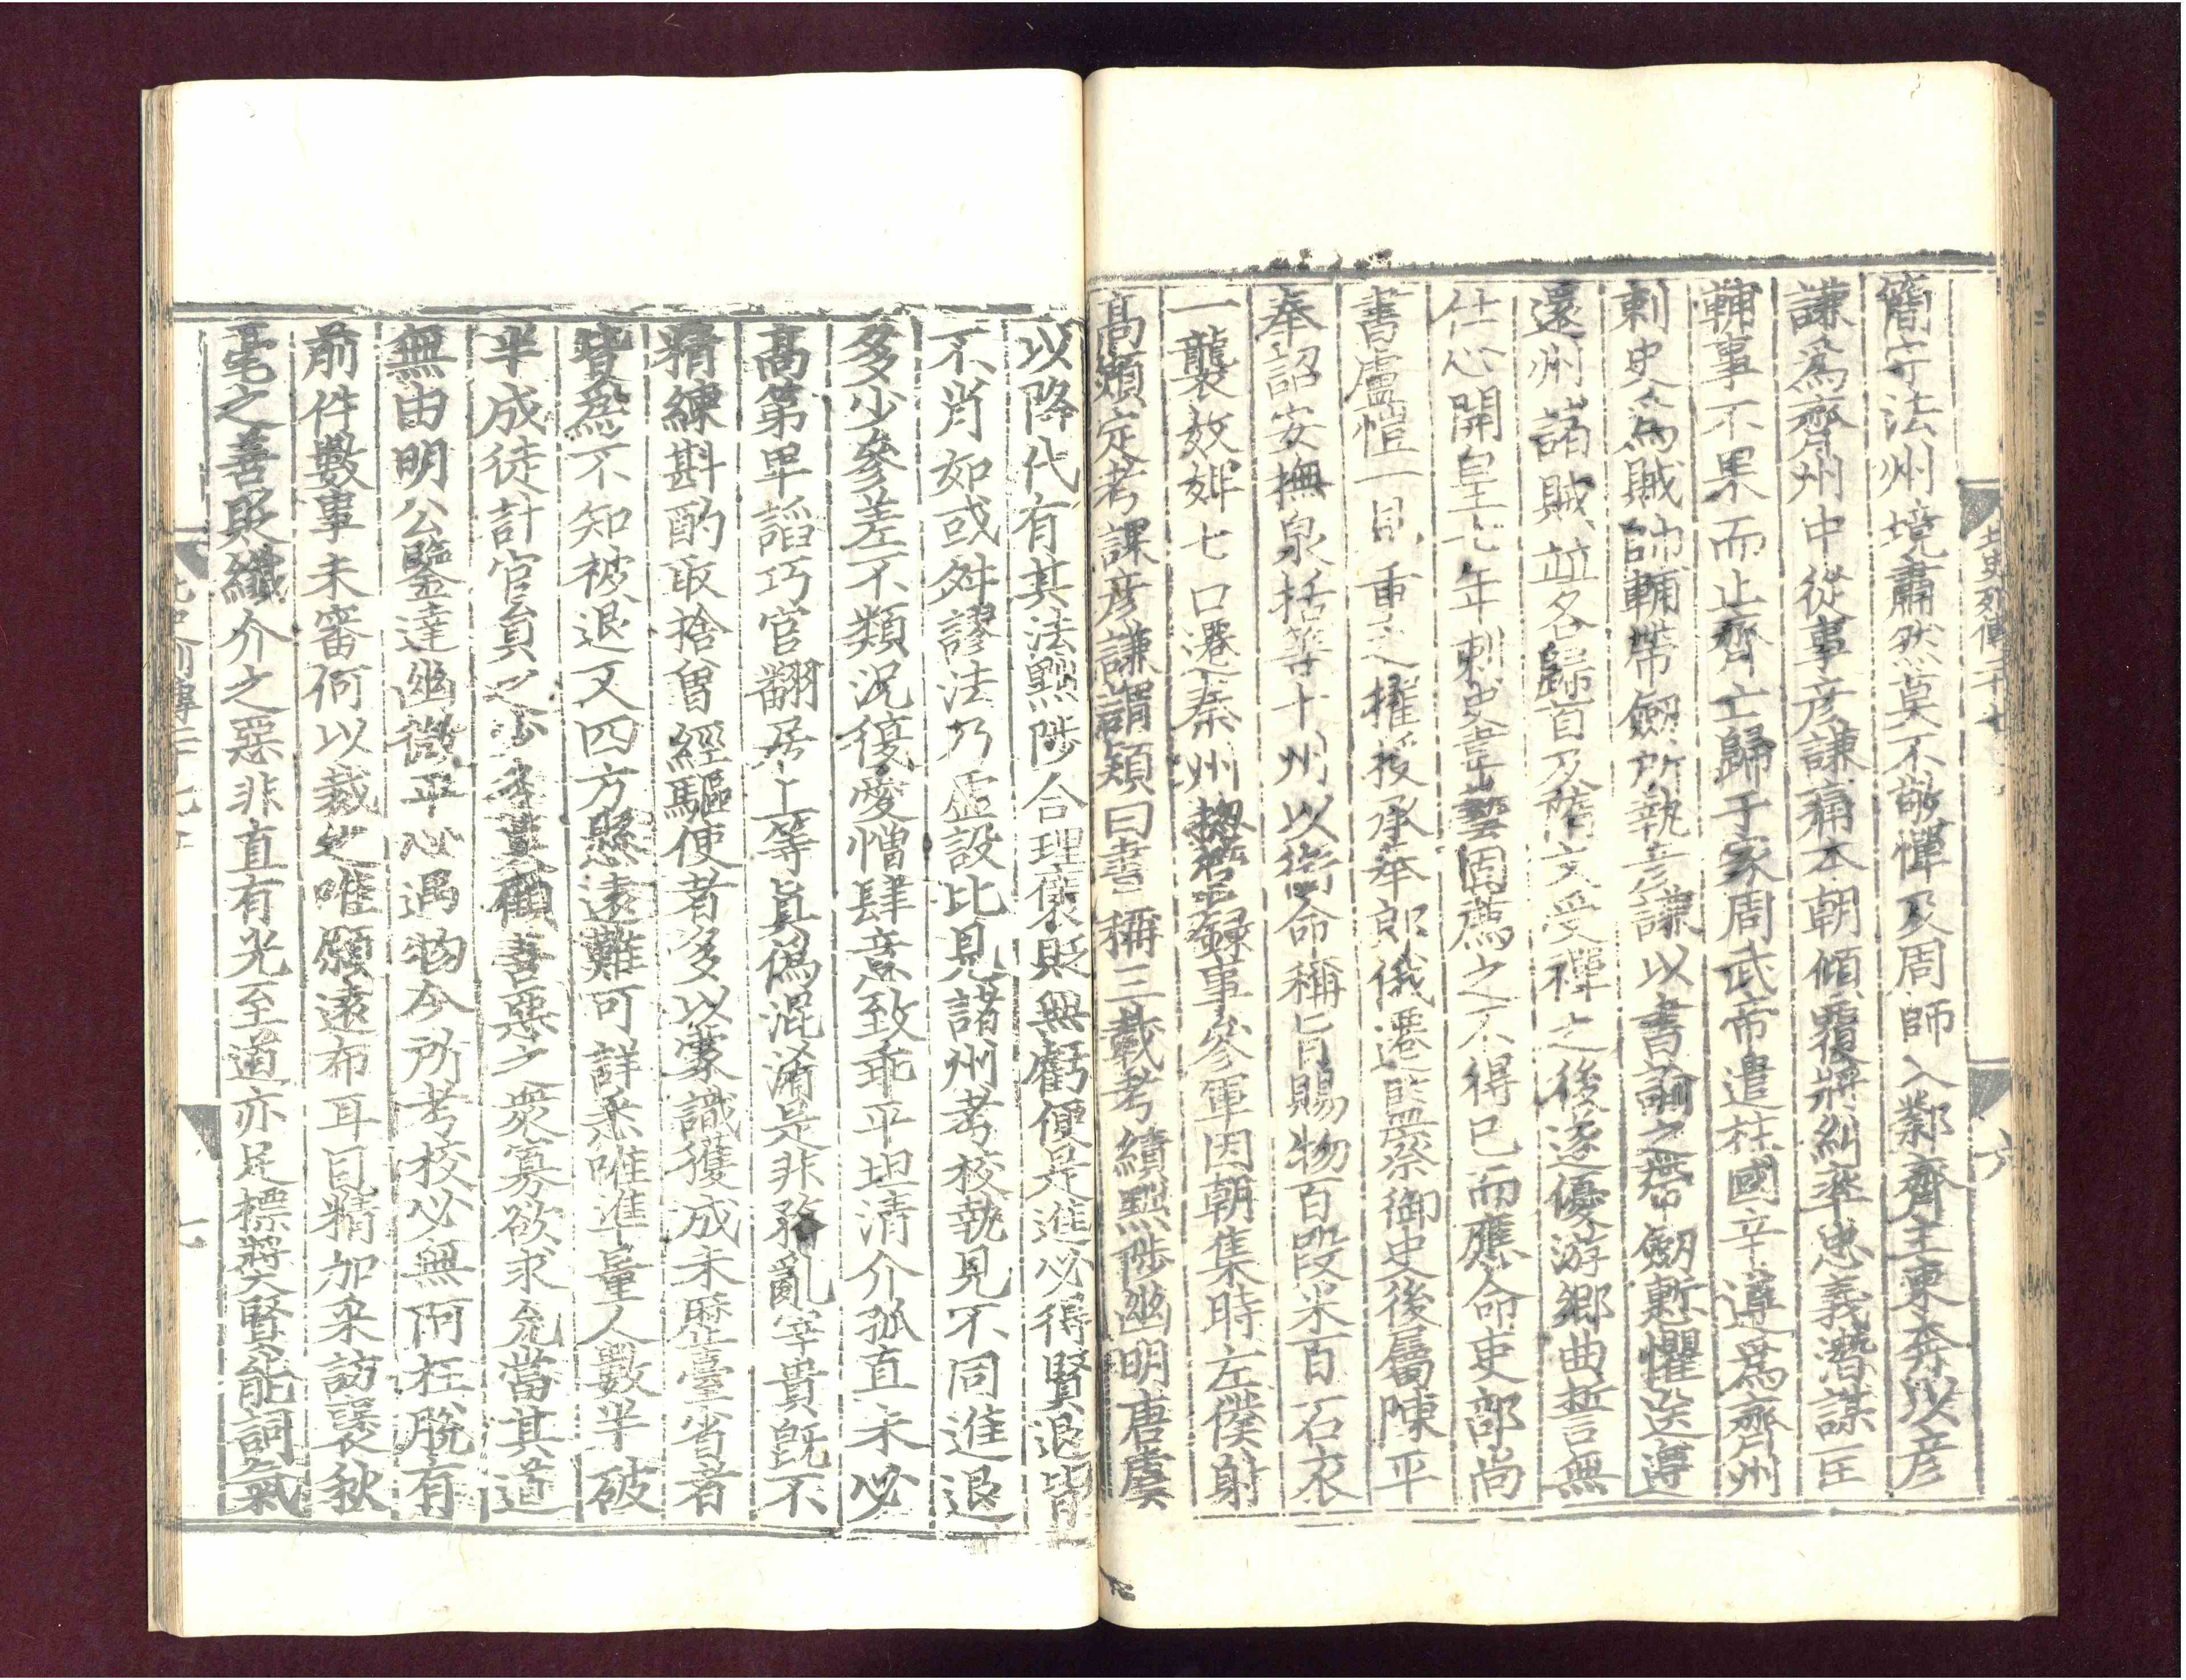 簡守法州境肅然莫不敬憚及周師入鄴齊主東奔以彦
謙爲齊州中從事彦謙痛本朝傾覆將糾率忠義潛謀匡
輔事不果而止齊亡歸于家周武帝遣柱國辛遵爲齊州
刺史爲賊帥輔帶劒所執彦謙以書諭之帶劒慙懼送遵
還州諸賊並各歸首及隋文受禪之後遂優游鄉曲誓無
仕心開皇七年刺史韋藝固薦之不得已而應命吏部尚
書盧愷一見重之擢授承奉郎俄遷監察御史後屬陳平
奉詔安撫泉括等十州以銜命稱旨賜物百段米百石衣
一襲奴婢七口遷秦州揔管錄事參軍因朝集時左僕射
高熲定考課彦謙謂熲曰書稱三載考績黜陟幽明唐虞
北史列傳二十七
六
以降代有其法黜陟合理褒貶無虧便是進必得賢退皆
不肖如或舛謬法乃虛設比見諸州考校執見不同進退
多少參差不類況復愛憎肆意致乖平坦清介孤直未必
高第卑諂巧官翻居上等眞僞混淆是非瞀亂宰貴旣不
精練斟酌取捨曾經驅使者多以蒙識獲成未歷臺省者
皆爲不知被退又四方懸遠難可詳悉唯準量人數半破
半成徒計官員之少多莫顧善惡之衆寡欲求允當其道
無由明公鑒達幽微平心遇物今所考校必無阿枉脫有
前件數事未審何以裁之唯願遠布耳目精加采訪襃秋
毫之善貶纖介之惡非直有光至道亦足標奬賢能詞氣
七